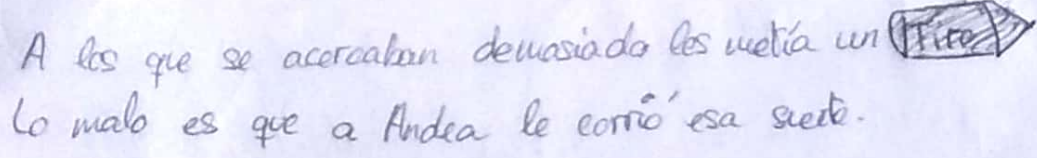 A los que se acercaban demasiado les metía un Tiro
Lo malo es que a Andea le corrió esa suerte.